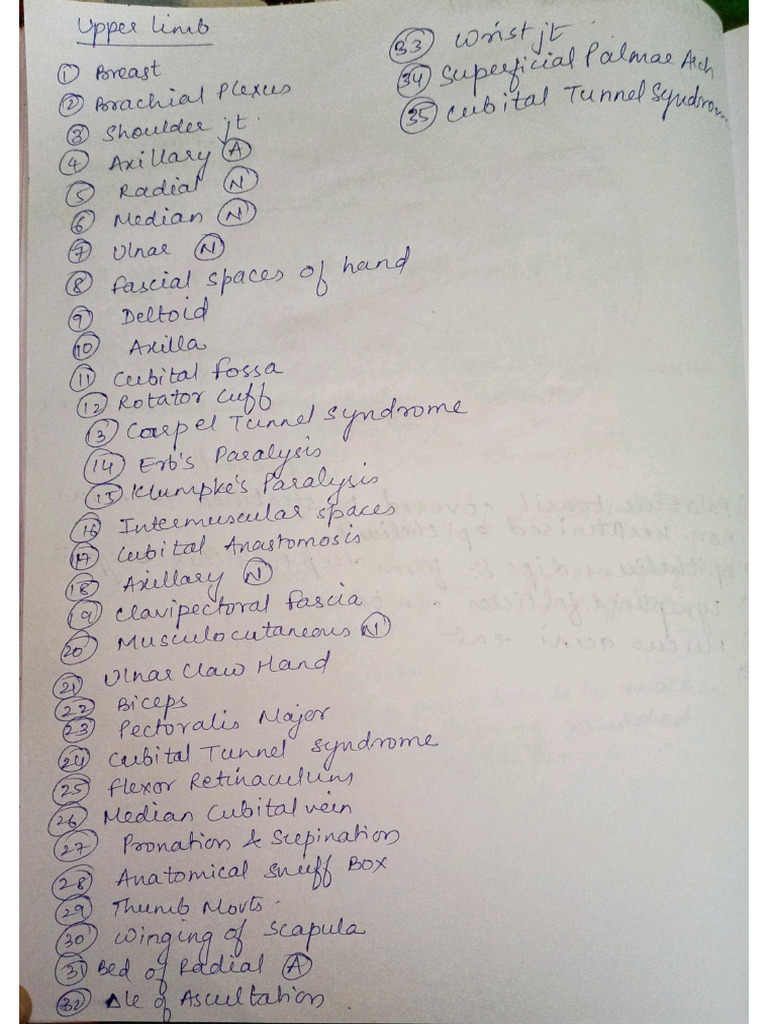 Upper limb
① Breast
② Brachial Plexus
③ Shoulder jt.
④ Axillary Ⓐ
⑤ Radial Ⓝ
⑥ Median Ⓝ
⑦ Ulnar Ⓝ
⑧ fascial spaces of hand
⑨ Deltoid
⑩ Axilla
⑪ Cubital fossa
⑫ Rotator Cuff
⑬ Carpel Tunnel Syndrome
⑭ Erb's Paralysis
⑮ Klumpke's Paralysis
⑯ Intermuscular spaces
⑰ Cubital Anastomosis
⑱ Axillary Ⓝ
⑲ Clavipectoral fascia
⑳ Musculocutaneous Ⓝ
㉑ Ulnar Claw Hand
㉒ Biceps
㉓ Pectoralis Major
㉔ Cubital Tunnel Syndrome
㉕ flexor Retinaculum
㉖ Median Cubital vein
㉗ Pronation & Supination
㉘ Anatomical Snuff Box
㉙ Thumb Movts.
㉚ Winging of Scapula
㉛ Bed of Radial Ⓐ
㉜ Δle of Ascultation
㉝ Wrist jt.
㉞ Superficial Palmar Arch
㉟ Cubital Tunnel Syndrom